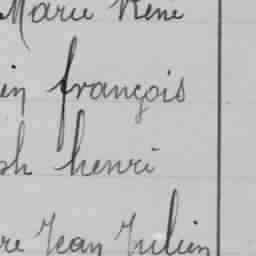 Marie René
in françois
ph henri
re Jean Julien